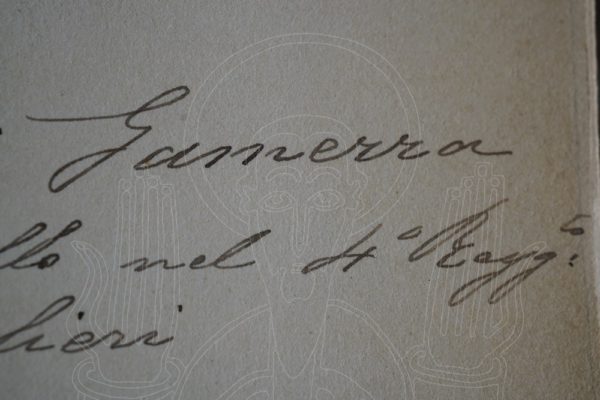 Gamerra
llo nel 4º Regg.to
lieri